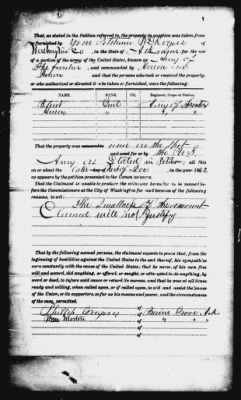 1
That, as stated in the Petition referred to, the property in question was taken from
or furnished by your Petitioner
Washington Co in the State of Arkansas for the use
of a portion of the army of the United States, known as Army of
the Frontier and commanded by
and that the persons who took or received the property,
or who authorized or directed it to be taken or furnished, were the following:
NAME. RANK. Regiment, Corps or Station.
Blunt Genl Army of Frontier
Herron " "
That the property was used on the spot
and used for or by the U.S.
Army as Stated in Petition, all this
on or about the day of Dec in the year 1862
as appears by the petition presented to the Commissioners.
That the Claimant is unable to produce the witnesses hereafter to be named before
the Commissioners at the City of Washington for and because of the following
reasons, to wit:
The smallness of the amount
Claimed will not Justify
By the following named persons, the claimant expects to prove that, from the
beginning of hostilities against the United States to the end thereof, his sympathies
were constantly with the cause of the United States; that he never, of his own free
will and accord, did anything, or offered, or sought, or attempted to do anything, by
word or deed, to injure said cause or retard its success, and that he was at all times
ready and willing, when called upon, or if called upon, to aid and assist the cause
of the Union, or its supporters, so far as his means and power, and the circumstances
of the case, permitted.
of Prairie Grove Ark
Morton of " "